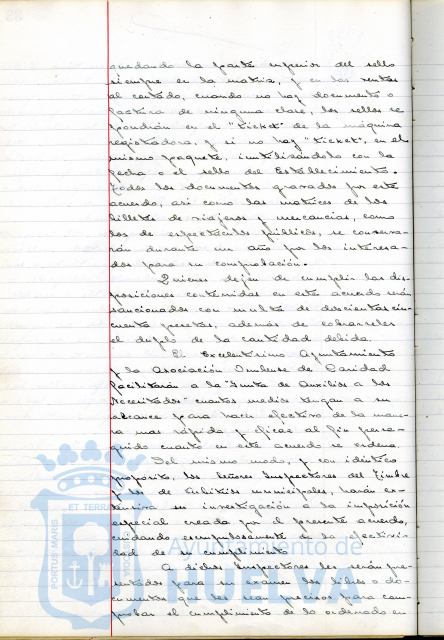 quedando la parte superior del sello
siempre en la matriz, y en las ventas
al contado, cuando no hay documento o
factura de ninguna clase, los sellos se
pondrán en el "ticket" de la máquina
registradora, y si no hay "ticket", en el
mismo paquete, inutilizándolo con la
fecha o el sello del Establecimiento.
Todos los documentos gravados por este
acuerdo, así como las matrices de los
billetes de viajeros y mercancías, como
los de espectáculos públicos, se conserva-
rán durante un año por los interesa-
dos para su comprobación.
Quienes dejen de cumplir las dis-
posiciones contenidas en este acuerdo serán
sancionados con multa de doscientas cin-
cuenta pesetas, además de cobrarseles
el duplo de la cantidad debida.
El Excelentísimo Ayuntamiento
y la Asociación Onubense de Caridad
facilitarán a la "Junta de Auxilios a los
Necesitados" cuantos medios tengan a su
alcance para hacer efectivo de la mane-
ra mas rápida y eficaz el fin perse-
guido cuanto en este acuerdo se ordena.
Del mismo modo, y con idéntico
propósito, los Señores Inspectores del Timbre
y los de Arbitrios municipales, harán ex-
tensiva su investigación a la imposición
especial creada por el presente acuerdo,
cuidando escrupulosamente de la efectivi-
dad de su cumplimiento.
A dichos Inspectores les serán pre-
sentados para su examen los libros o do-
cumentos que les sean precisos para com-
probar el cumplimiento de lo ordenado en
PORTUS MARIS
ET TERRAE
Ayuntamiento de
HUELVA